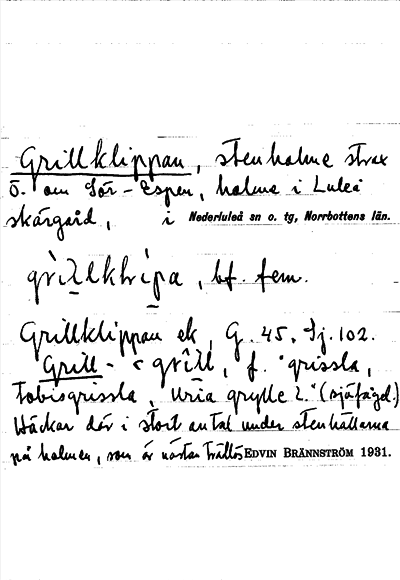 Grillklippan, stenholme strax
Ö. om Sör-Espen, holme i Luleå
skärgård, i Nederluleå sn o. tg, Norrbottens län.
bf. fem.
Grillklippan ek, G. 45, Sj. 102.
Grill- < grill, f. "grissla,
tobisgrissla, Uria grylle L." (sjöfågel.)
Häckar där i stort antal under stenhällarna
på holmen, som är nästan trädlös EDVIN BRÄNNSTRÖM 1931.